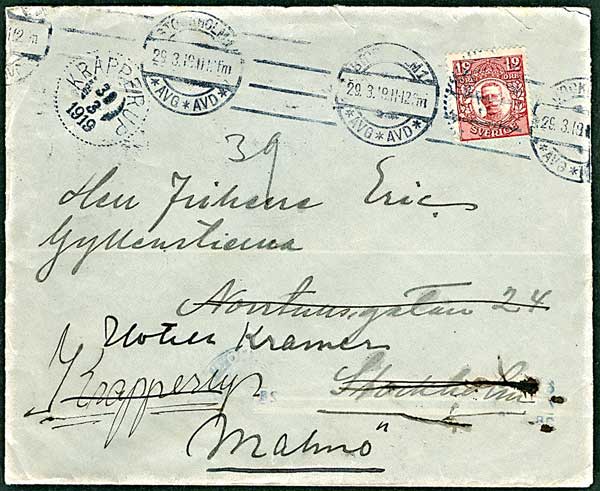 STOCKHOLM 1
29.3.19.11-12 fm
* AVG * AVD *
STOCKHOLM 1
29.3.19.11-12 fm
* AVG * AVD *
29.3.19
* AVG *
KRAPPERUP
30
3
1919
12 12
ÖRE
SVERIGE
39
Herr Friherre Eric
Gyllenstierna
Norrtullsgatan 24
Hotel Kramer
Krapperup
Stockholm
Malmö